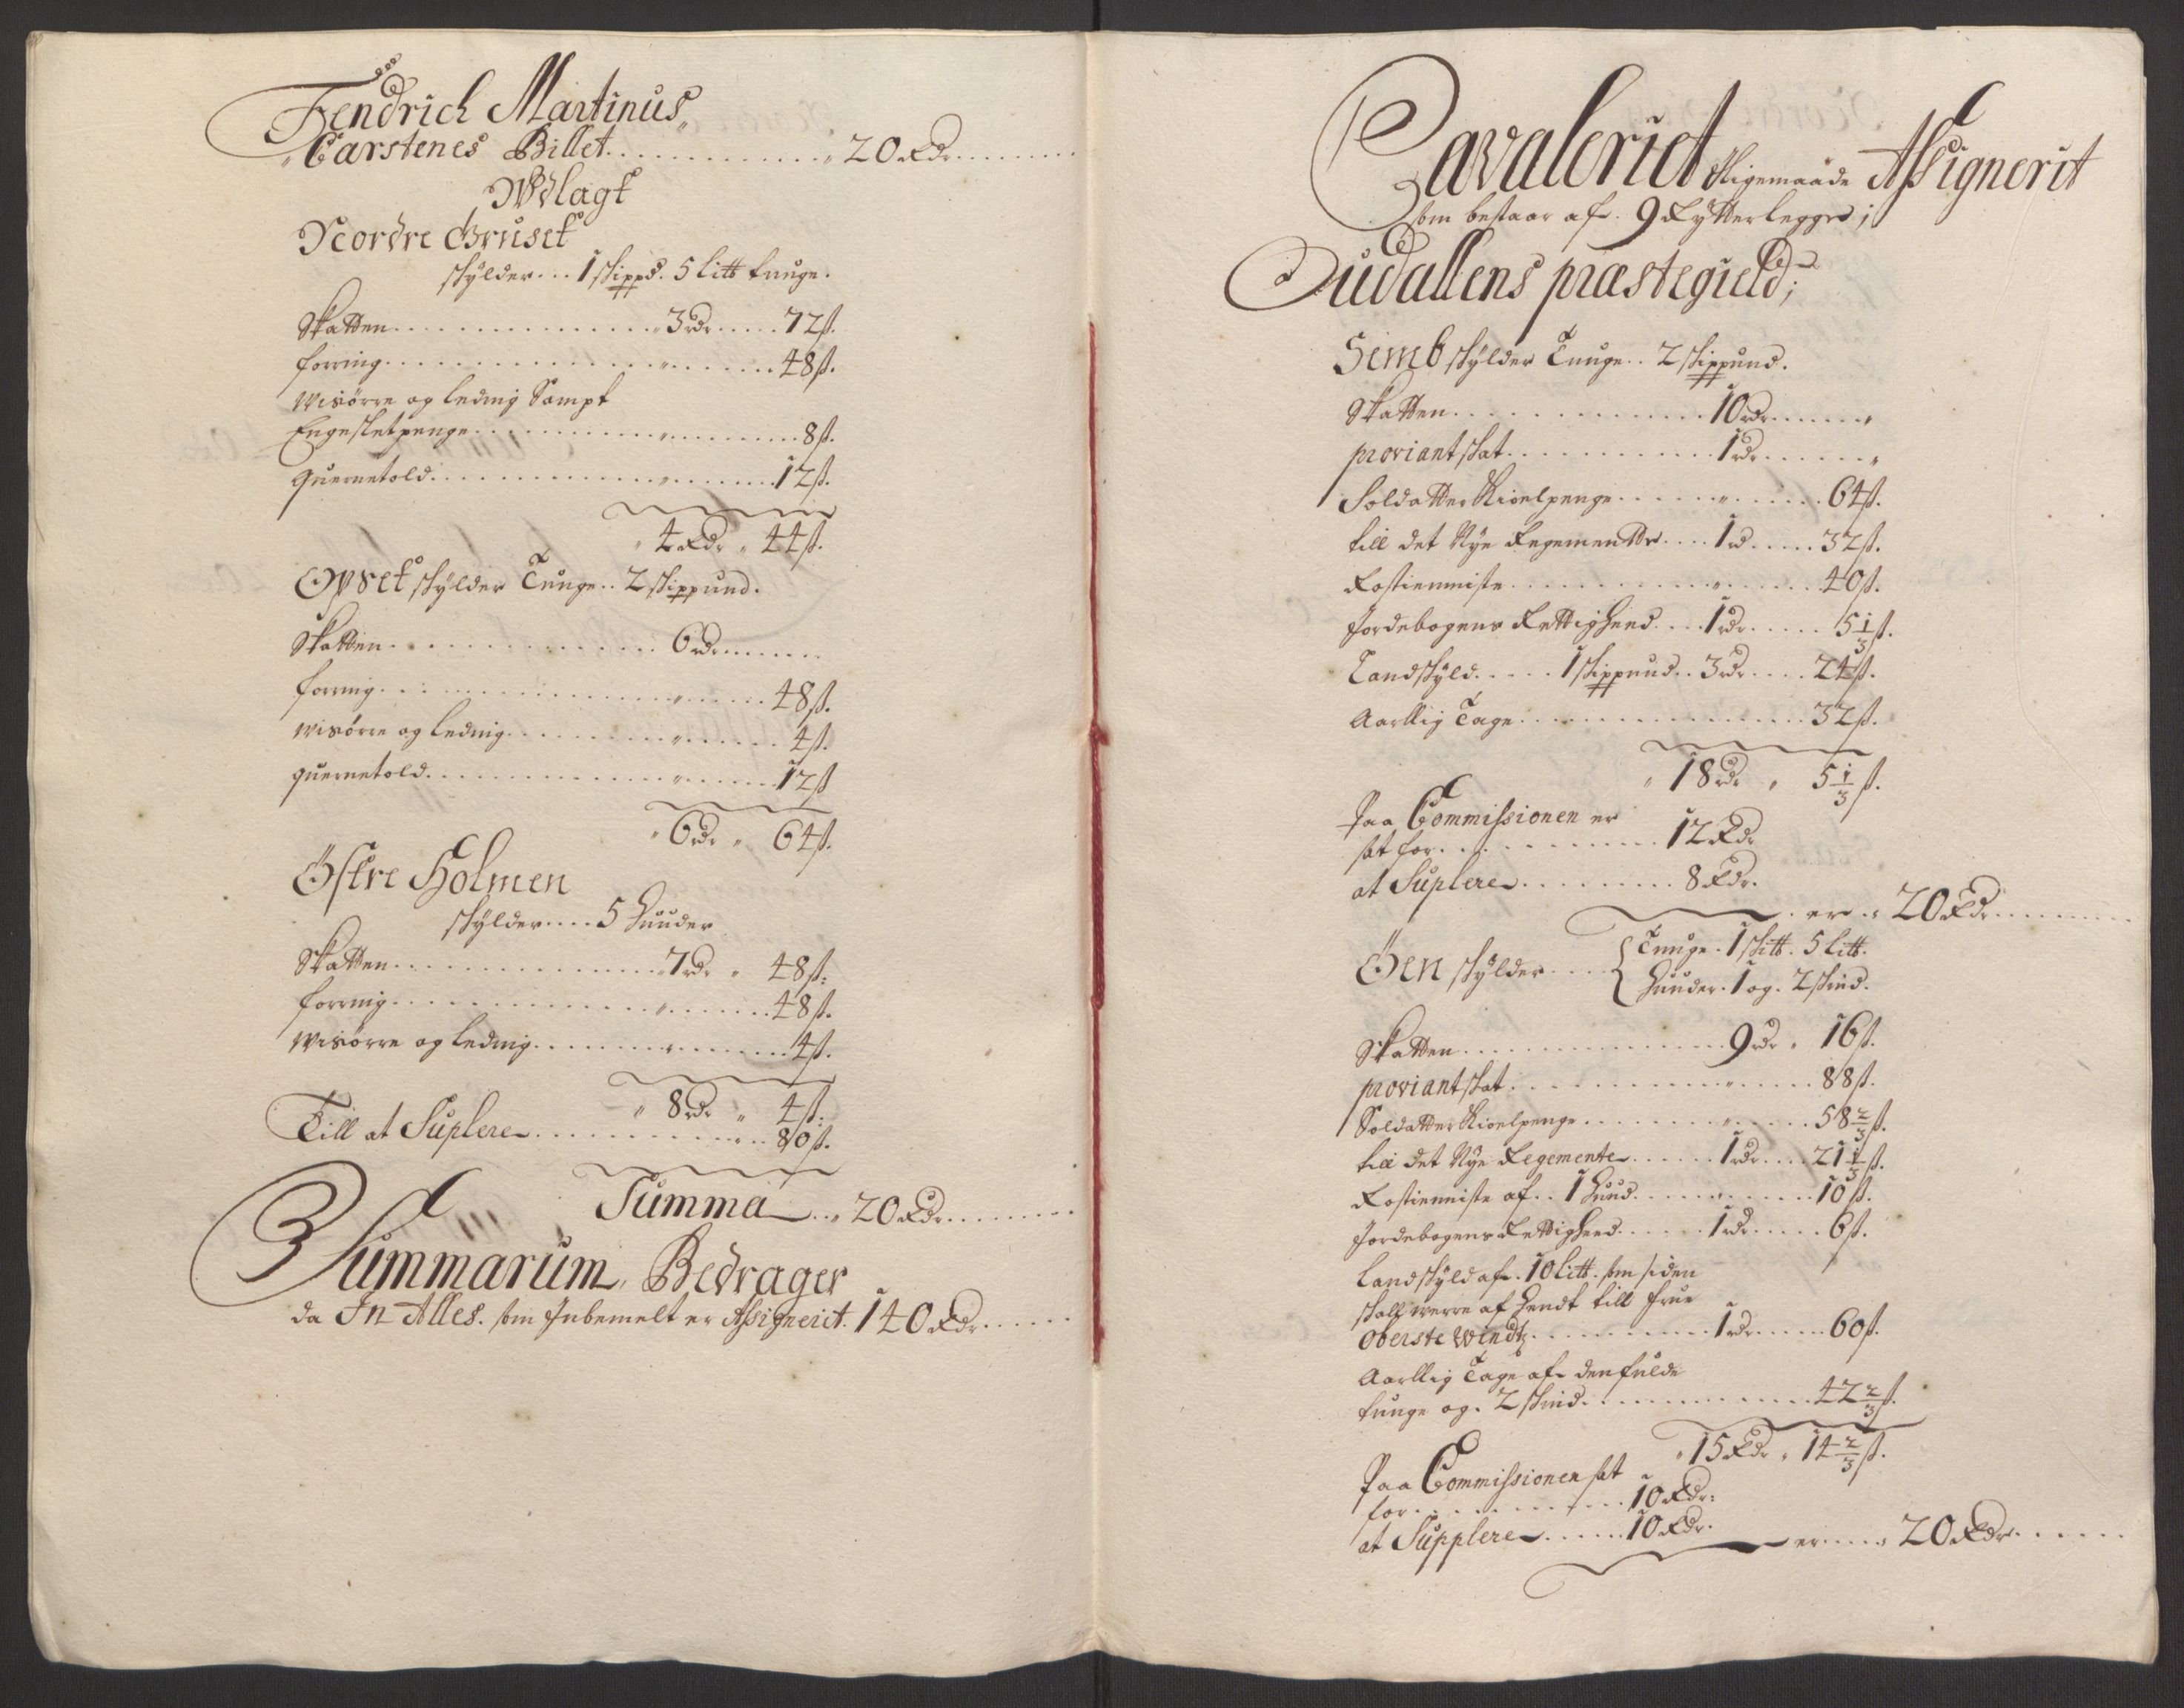 Fendrich Martinus
Carstenes Billet . . . . 20 Rdr . . .
Udlagt
Nordre Gruset
skylder . . . 1 skippd. 5 litt tunge.
Skatten . . . . 3 rdr . . . 72 ß.
forring . . . . " . . . 48 ß.
Wisørre og leding Sampt
Engesletpenge . . . . " . . . 8 ß.
quernetold . . . . " . . . 12 ß.
" 4 Rdr " 44 ß.
Opset skylder Tunge . . 2 skippund.
Skatten . . . . 6 rdr . . .
forring . . . . " . . . 48 ß.
wisørre og leding . . . . " . . . 4 ß.
quernetold . . . . " . . . 12 ß
" 6 rdr " 64 ß.
Östre Holmen
skylder . . . . 5 Huuder
Skatten . . . . 7 rdr " 48 ß:
forring . . . . " . . . 48 ß.
Wisörre og leding . . . . " . . . 4 ß.
" 8 rdr " 4 ß:
Till at Suplere . . . . " . . 80 ß.
Summa . . " 20 Rdr . . .
Summarum Bedrager
da In Alles. som Inbemelt er Assignerit. 140 Rdr . . .
Cavaleriet Ligemaade Assignerit
som bestaar af. 9 Rytterlegger;
Qudallens præstegield;
Semb skylder Tunge . . 2 skippund.
Skatten . . . . 10 rdr . . . "
proviantskat . . . . 1 rdr . . . "
Soldatter Kioelpenge . . . . " . . . 64 ß.
till det Nye Regementtr . . . . 1 rd . . . 32 ß.
Rostienniste . . . . " . . . 40 ß.
Jordebogens Rettigheed . . . 1 rdr . . . 5 1/3 ß.
Landskyld . . . . 1 skippund . . 3 rdr . . . 24 ß.
Aarllig Tage . . . . 32 ß.
" 18 rdr " 5 1/3 ß.
Paa Commissionen er
sat for . . . . 12 Rdr
at Suplere . . . . 8 Rdr.
er . " 20 Rdr . . .
Öen skylder . . . . Tunge . 1 skitt. 5 litt.
Huuder . 1 og . 2 skind.
Skatten . . . . 9 rdr " 16 ß.
proviantskat . . . . " . . . 88 ß.
Soldatter Kioelpenge . . . . " . . . 58 2/3 ß.
till det Nye Regemente . . . . 1 rdr . . . 21 1/3 ß.
Rostienniste af . . 1 Huud . . . " . . . 10 ß.
Jordebogens Rettigheed . . . . 1 rdr . . . 6 ß.
Landskyld af. 10 litt. som siden
skall werre af Hendt till Frue
Oberste Windtz . . . . 1 rdr . . . 60 ß.
Aarllig Tage af den fulde
tunge og . 2 skind . . . . 42 2/3 ß.
" 15 Rdr " 14 2/3 ß.
Paa Commissionen sat
for . . . . 10 Rdr:
at Supplere . . . . 10 Rdr.
er . . . " 20 Rdr . . .